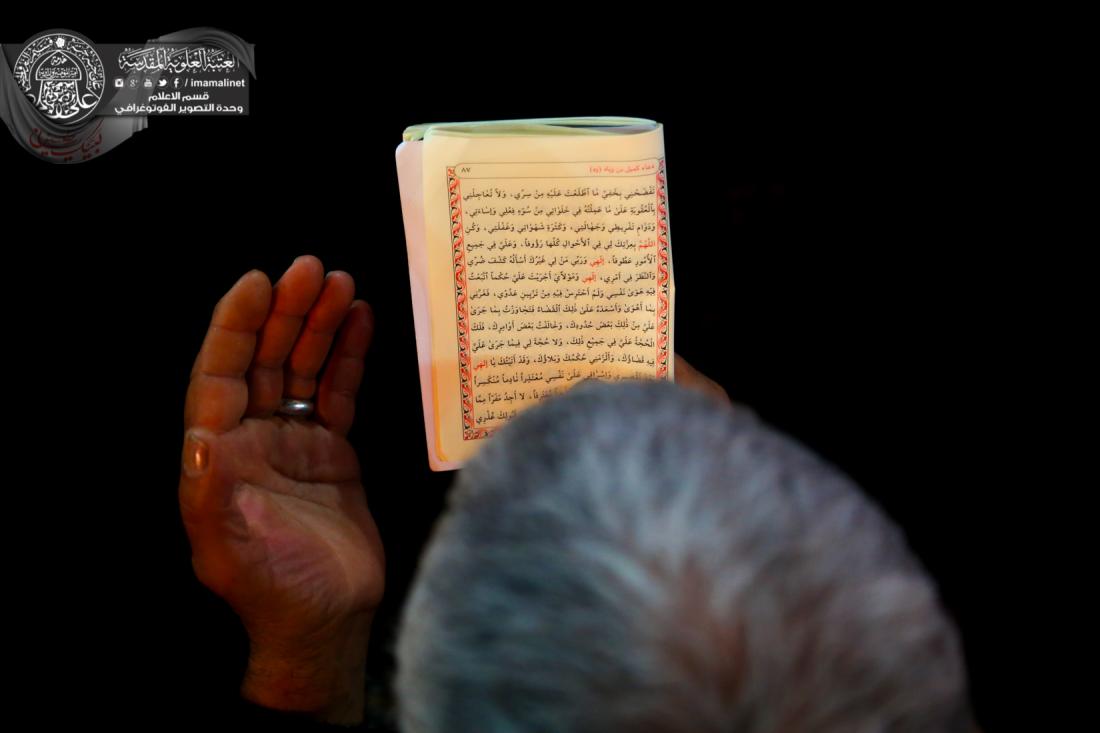 العتبة العلوية المقدسة
/ imamalinet
قسم الاعلام
وحدة التصوير الفوتوغرافي
لبيك يا حسين
دعاء كميل بن زياد (ره)
٨٧
تَفْضَحْنِي بِخَفِيِّ مَا ٱطَّلَعْتَ عَلَيْهِ مِنْ سِرِّي، وَلاَ تُعَاجِلْنِي
بِٱلْعُقُوبَةِ عَلىٰ مَا عَمِلْتُهُ فِي خَلَوَاتِي مِنْ سُوءِ فِعْلِي وَإِسَاءَتِي،
وَدَوَامِ تَفْرِيطِي وَجَهَالَتِي، وَكَثْرَةِ شَهَوَاتِي وَغَفْلَتِي، وَكُنِ
اللّٰهُمَّ بِعِزَّتِكَ لِي فِي ٱلأَحْوَالِ كُلِّهَا رَؤُوفاً، وَعَلَيَّ فِي جَمِيعِ
ٱلأُمُورِ عَطُوفاً، إِلٰهِي وَرَبِّي مَنْ لِي غَيْرُكَ أَسْأَلُهُ كَشْفَ ضُرِّي
وَٱلنَّظَرَ فِي أَمْرِي، إِلٰهِي وَمَوْلاَيَ أَجْرَيْتَ عَلَيَّ حُكْماً ٱتَّبَعْتُ
فِيهِ هَوىٰ نَفْسِي وَلَمْ أَحْتَرِسْ فِيهِ مِنْ تَزْيِينِ عَدُوِّي، فَغَرَّنِي
بِمَا أَهْوىٰ وَأَسْعَدَهُ عَلىٰ ذٰلِكَ ٱلْقَضَاءُ فَتَجَاوَزْتُ بِمَا جَرىٰ
عَلَيَّ مِنْ ذٰلِكَ بَعْضَ حُدُودِكَ، وَخَالَفْتُ بَعْضَ أَوَامِرِكَ، فَلَكَ
ٱلْحُجَّةُ عَلَيَّ فِي جَمِيعِ ذٰلِكَ، وَلاَ حُجَّةَ لِي فِيمَا جَرىٰ عَلَيَّ
فِيهِ قَضَاؤُكَ، وَأَلْزَمَنِي حُكْمُكَ وَبَلاَؤُكَ، وَقَدْ أَتَيْتُكَ يَا إِلٰهِي
عَلىٰ نَفْسِي مُعْتَذِراً نَادِماً مُنْكَسِراً
لاَ أَجِدُ مَفَرّاً مِمَّا
عُذْرِي